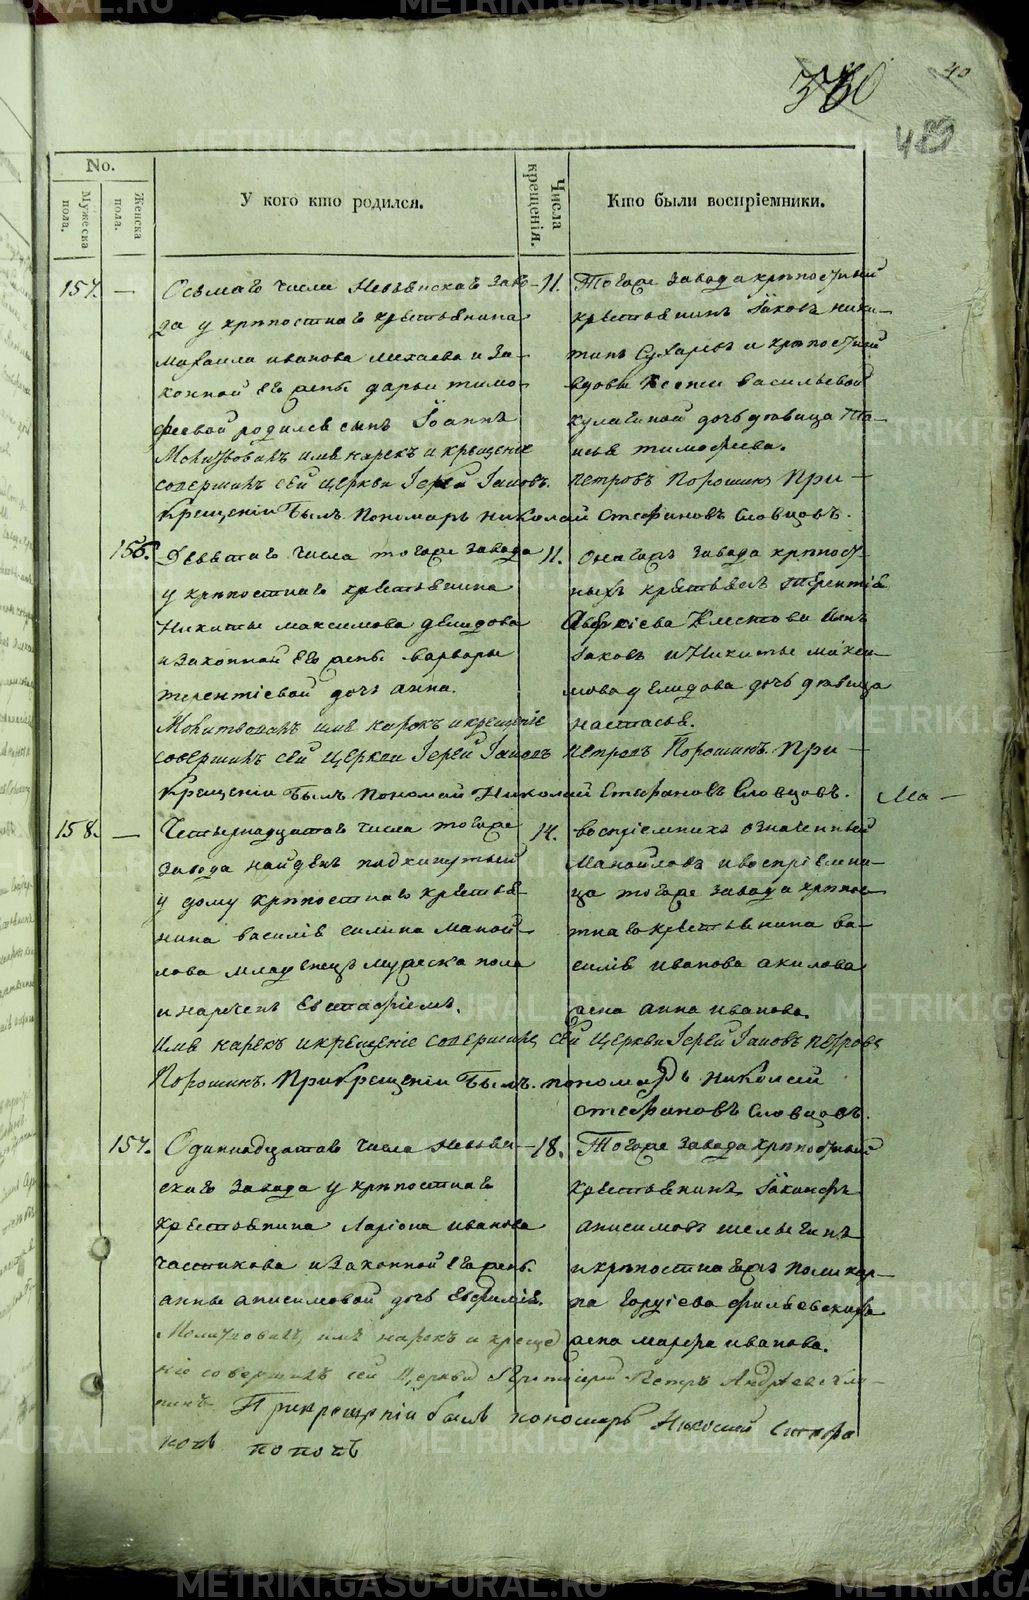 40
330
METRIKI.GASO-URAL.RU
No.
Мужеска пола.
Женска пола.
У кого кто родился.
Числа крещенія.
Кто были воспріемники.
157. — Осьмаго числа Невьянскаго заво-
да у крѣпостнаго крестьянина
Михаила Иванова и за-
конной его жены Дарьи Тимо-
феевой родился сынъ Іоаннъ
Молитвовалъ имя нарекъ и крещеніе
совершилъ сей церкви Іерей Іаковъ
крещеніи былъ пономарь Николай Стефановъ Словцовъ.
11. Тогоже завода крѣпостный
крестьянинъ Іаковъ Ники-
тинъ Сухаревъ и крѣпостной
вдовы Ксении Васильевой
Кулагиной дочь дѣвица Та-
исья Тимофеева.
Петровъ Порошинъ При
156. Девятаго числа тогоже завода
у крѣпостнаго крестьянина
Никиты Максимова Демидова
и законной его жены Варвары
Терентіевой дочь Анна.
Молитвовалъ имя нарекъ и крещеніе
совершилъ сей церкви Іерей Іаковъ
крещеніи былъ пономарь Николай Стефановъ Словцовъ.
11. Онагожъ завода крѣпост-
ныхъ крестьянъ Терентія
сынъ
Іаковъ и Никиты Макси-
мова Демидова дочь дѣвица
Настасья.
Петровъ Порошинъ. При
158. — Четырнадцатаго числа тогоже
завода найденъ подкинутый
у дому крѣпостнаго крестья-
нина Василія Силина Маной-
лова младенецъ мужеска пола
и нареченъ Евстафіемъ.
имя нарекъ и крещеніе совершилъ сей церкви Іерей Іаковъ Петровъ
Порошинъ. При крещеніи былъ пономарь Николай
Стефановъ Словцовъ.
14. воспріемникъ означенный
Манойловъ и воспріемни-
ца тогоже завода крѣпос-
тнаго крестьянина Ва-
силія Иванова Акилова
жена Анна Иванова.
Мо —
157. Одинадцатаго числа Невьян-
скаго завода у крѣпостнаго
крестьянина Ларіона Иванова
Частикова и законной его жены
Анны Анисимовой дочь Евфимія.
Молитвовалъ, имя нарекъ и креще-
ніе совершилъ сей церкви Протоіерей Петръ
При крещеніи былъ пономарь Николай Стефа
новъ Поповъ
18. Тогоже завода крѣпостный
крестьянинъ
Анисимовъ Шелыгинъ
и крѣпостнагожъ Поликар-
па
жена Марфа Иванова.